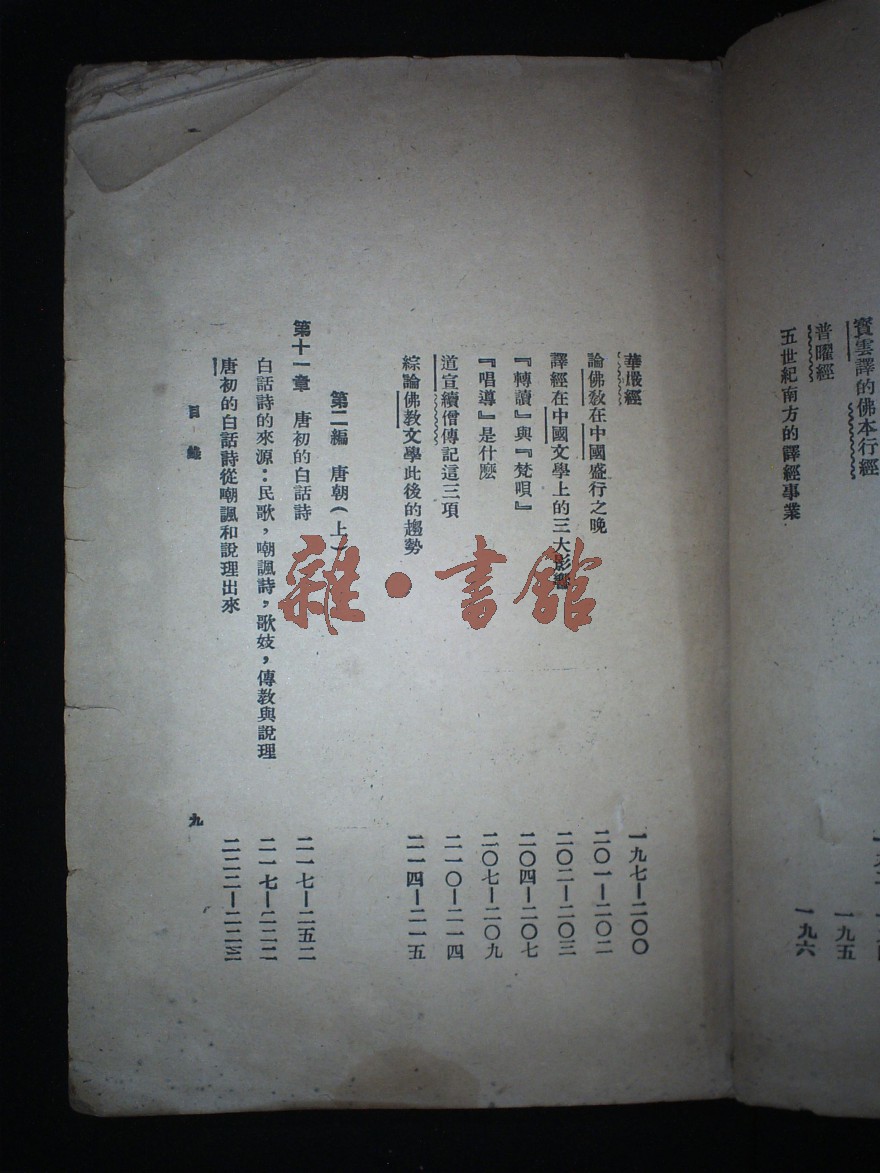 寶雲譯的佛本行經
普曜經 一九五
五世紀南方的譯經事業 一九六
華嚴經 一九七—二〇〇
論佛教在中國盛行之晚 二〇一—二〇二
譯經在中國文學上的三大影響 二〇二—二〇三
『轉讀』與『梵唄』 二〇四—二〇七
『唱導』是什麽 二〇七—二〇九
道宣續僧傳記這三項 二一〇—二一四
綜論佛教文學此後的趨勢 二一四—二一五
第二編 唐朝(上)
第十一章 唐初的白話詩 二一七—二五二
白話詩的來源:民歌,嘲諷詩,歌妓,傳教與說理 二一七—二二二
唐初的白話詩從嘲諷和說理出來 二二二—二二三
目錄
九
雜·書館